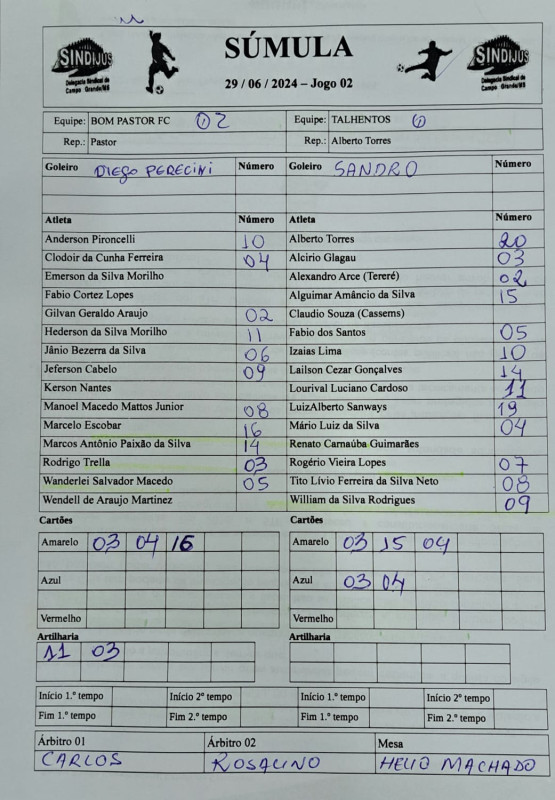 SINDIJUS SÚMULA SINDIJUS
Delegacia Sindical de Campo Grande/MS 29 / 06 / 2024 – Jogo 02 Delegacia Sindical de Campo Grande/MS
Equipe: BOM PASTOR FC 02 Equipe: TALHENTOS 0
Rep.: Pastor Rep.: Alberto Torres
Goleiro DIEGO PERECINI Número Goleiro SANDRO Número
Atleta Número Atleta Número
Anderson Pironcelli 10 Alberto Torres 20
Clodoir da Cunha Ferreira 04 Alcirio Glagau 03
Emerson da Silva Morilho Alexandro Arce (Tereré) 02
Fabio Cortez Lopes Alguimar Amâncio da Silva 15
Gilvan Geraldo Araujo 02 Claudio Souza (Cassems)
Hederson da Silva Morilho 11 Fabio dos Santos 05
Jânio Bezerra da Silva 06 Izaias Lima 10
Jeferson Cabelo 09 Lailson Cezar Gonçalves 14
Kerson Nantes Lourival Luciano Cardoso 11
Manoel Macedo Mattos Junior 08 LuizAlberto Sanways 19
Marcelo Escobar 16 Mário Luiz da Silva 04
Marcos Antônio Paixão da Silva 14 Renato Carnaúba Guimarães
Rodrigo Trella 03 Rogério Vieira Lopes 07
Wanderlei Salvador Macedo 05 Tito Lívio Ferreira da Silva Neto 08
Wendell de Araujo Martinez William da Silva Rodrigues 09
Cartões Cartões
Amarelo 03 04 16 Amarelo 03 15 04
Azul Azul 03 04
Vermelho Vermelho
Artilharia Artilharia
11 03
Início 1.º tempo Início 2º tempo Início 1.º tempo Início 2º tempo
Fim 1.º tempo Fim 2.º tempo Fim 1.º tempo Fim 2.º tempo
Árbitro 01 Árbitro 02 Mesa
CARLOS ROSALINO HELIO MACHADO